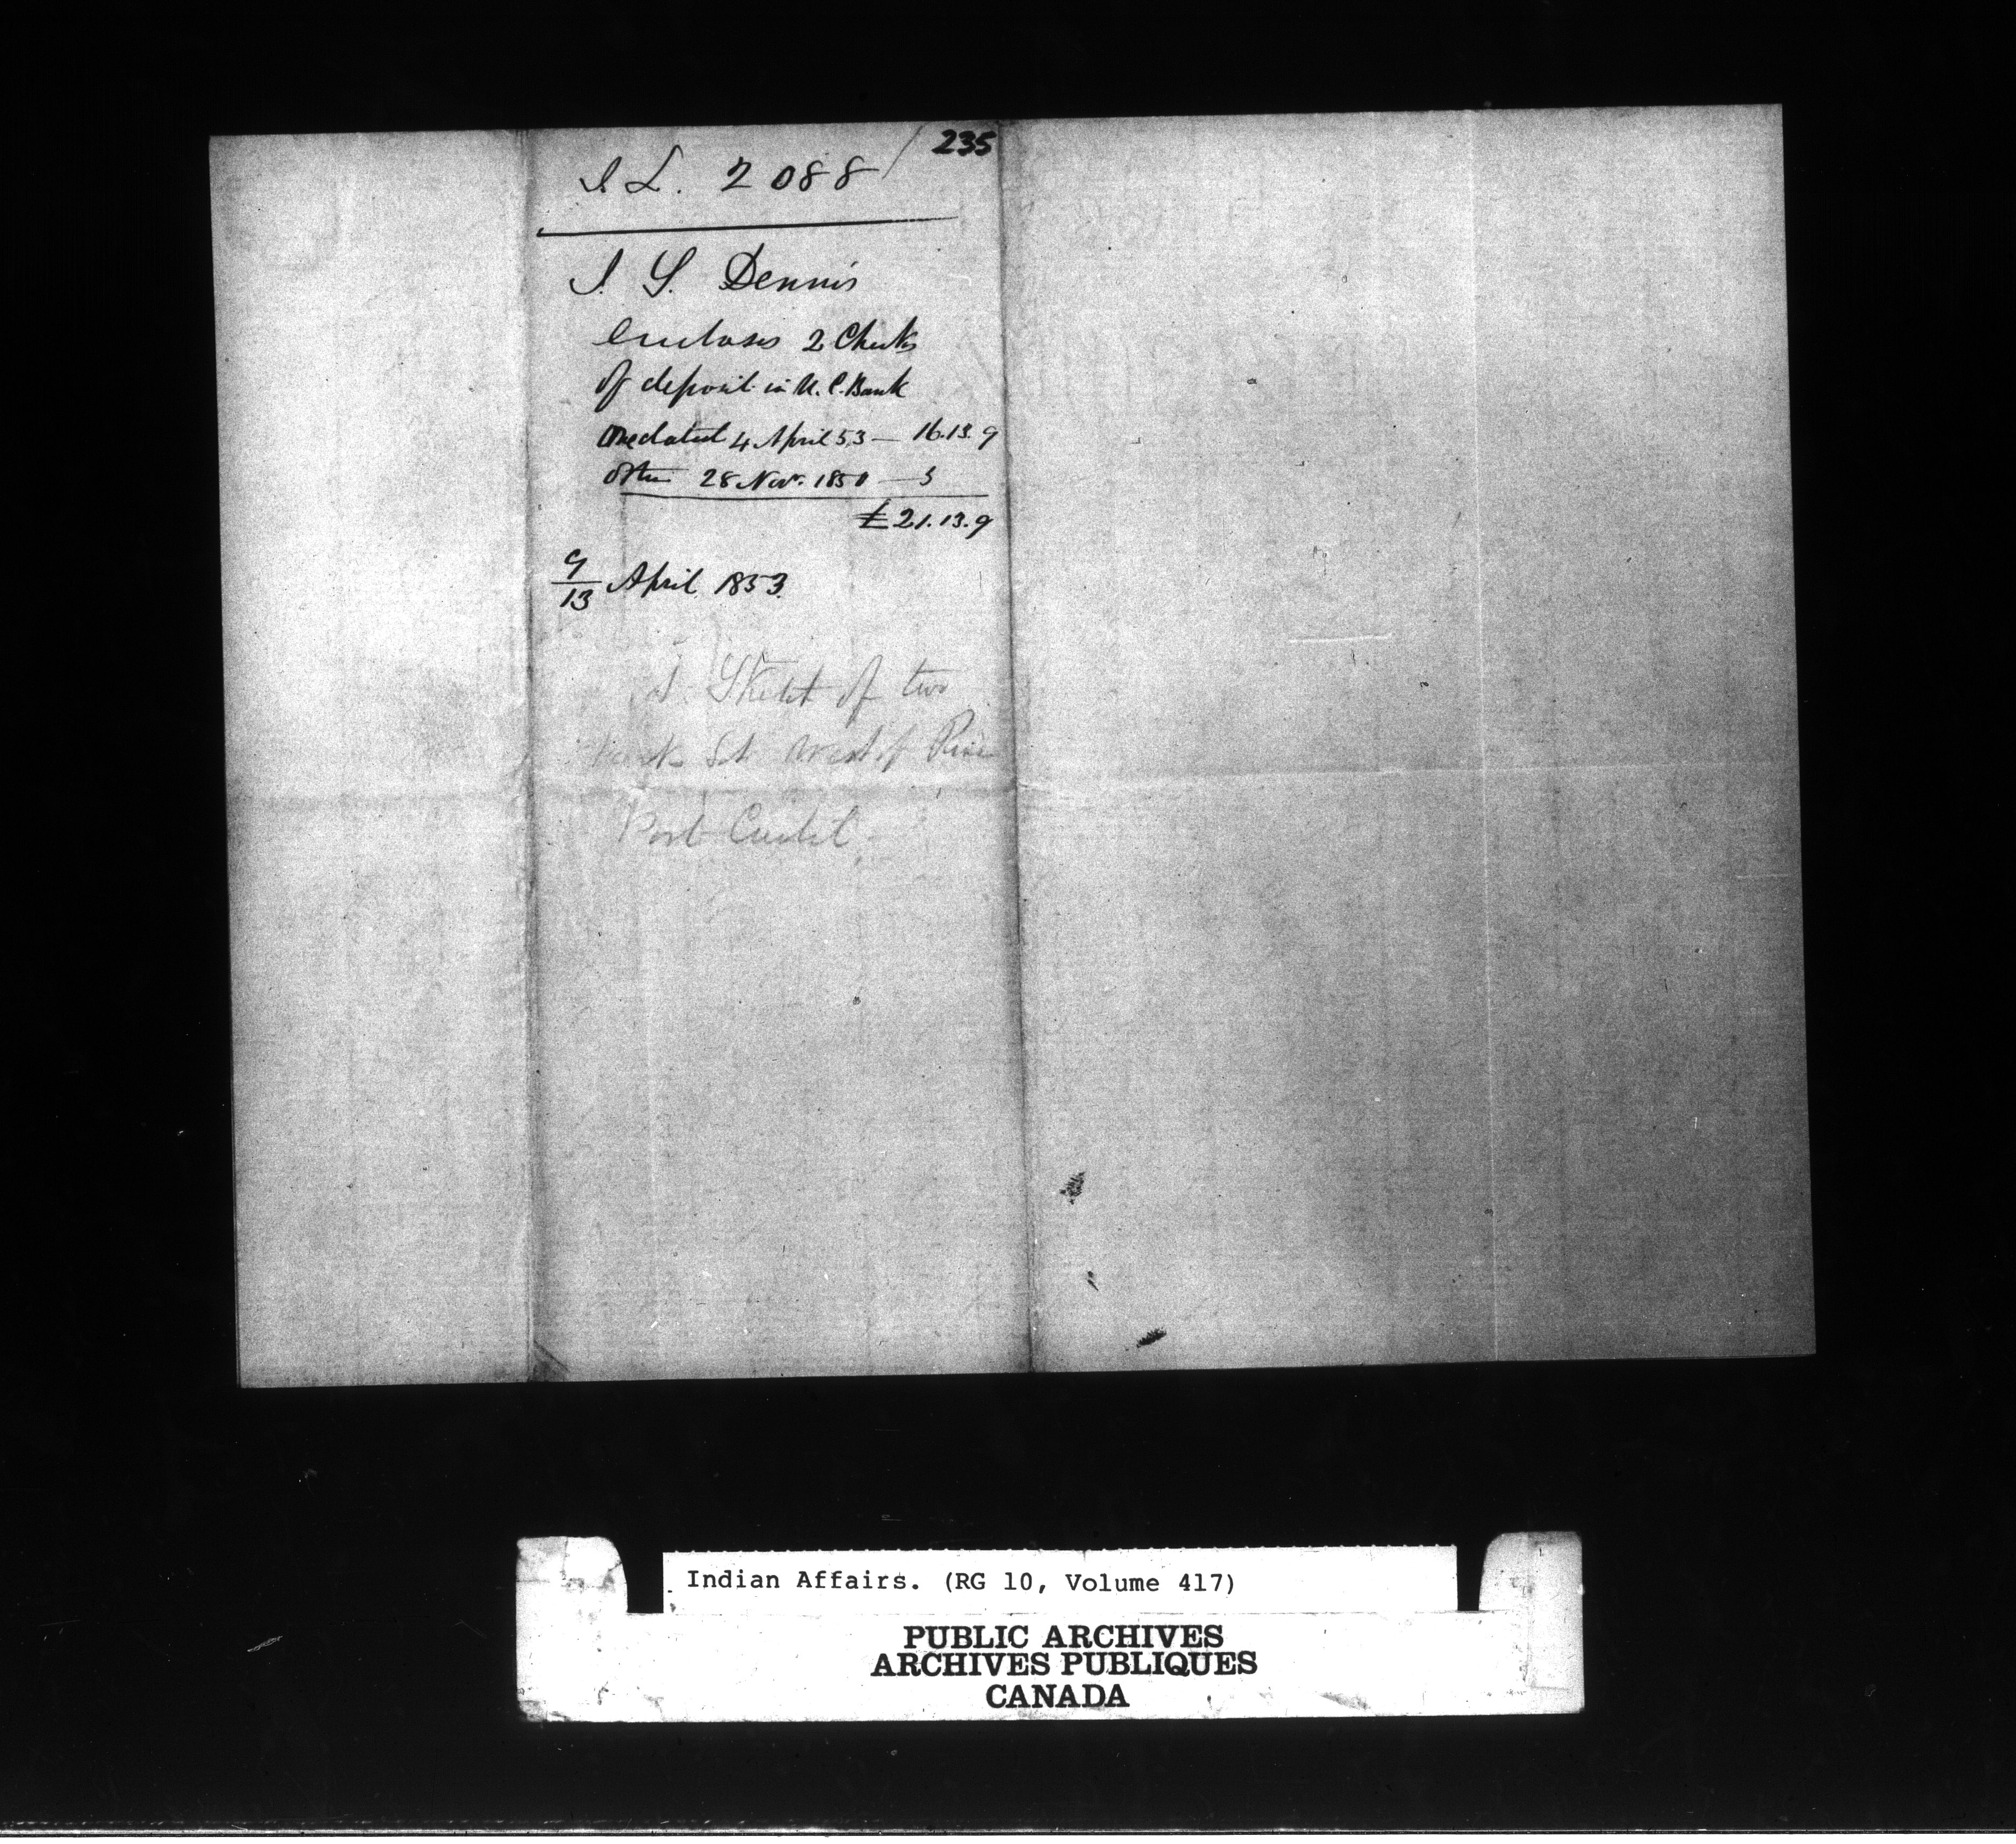 235
I L. 2088
J. S. Dennis
Encloses 2 Checks
of deposit in U. C. Bank
One dated 4 April 53 — 16.13.9
Other 28 Nov. 1851 — 5
£21.13.9
9/13 April 1853.
A Sketch of two
Park Lots West of River
Port Credit.
Indian Affairs. (RG 10, Volume 417)
PUBLIC ARCHIVES
ARCHIVES PUBLIQUES
CANADA